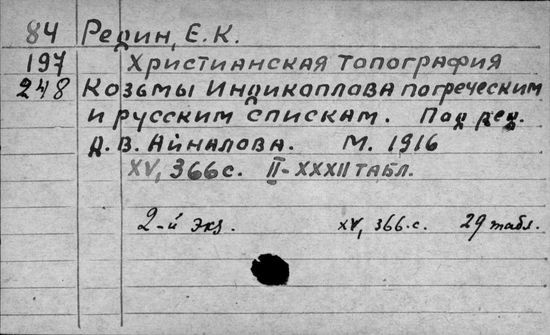 84 Редин, Е.К.
197 Христианская топография
248 Козьмы Индикоплова по греческим
и русским спискам. Под ред.
Д.В. Айналова. М. 1916
XV, 366 с. II-XXXII табл.
2-й экз. XV, 366.с. 29 табл.